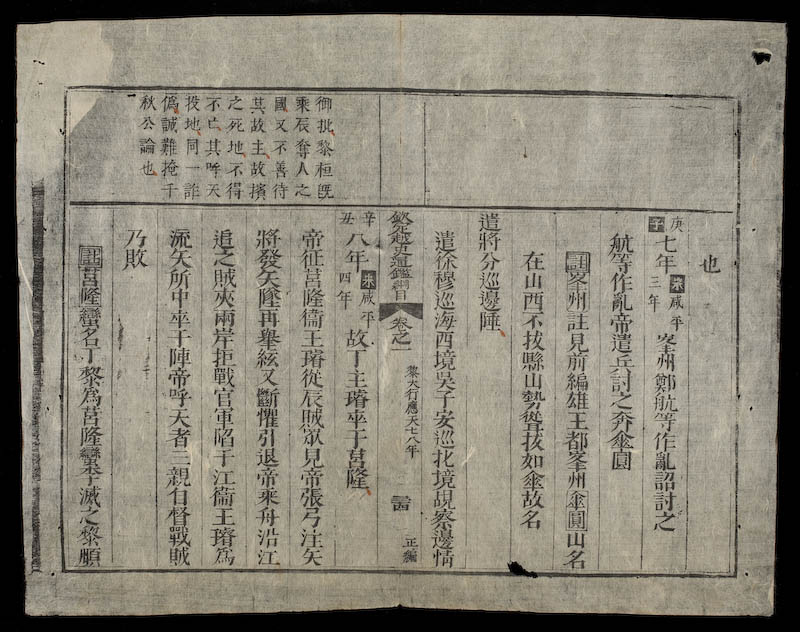 也
庚子七年宋咸平三年峯州鄭航等作亂詔討之
航等作亂帝遣兵討之奔傘圓
註峯州註見前編雄王都峯州傘圓山名
在山西不拔縣山勢聳拔如傘故名
遣將分巡邊陲
遣徐穆巡海西境吳子安巡北境覘察邊情
欽定越史通鑑綱目 卷之一 黎大行應天七八年 正編
辛丑八年宋咸平四年故丁主璿卒于莒隆
御批黎桓旣
乘辰奪人之
國又不善待
其故主故擯
之死地不得
不亡其呼天
投地同一詐
僞誠難掩千
秋公論也
帝征莒隆衞王璿從辰賊眾見帝張弓注矢
將發矢墜再舉絃又斷懼引退帝乘舟沿江
追之賊夾兩岸拒戰官軍陷于江衞王璿為
流矢所中卒于陣帝呼天者三親自督戰賊
乃敗
註莒隆蠻名丁黎為莒隆蠻李滅之黎順